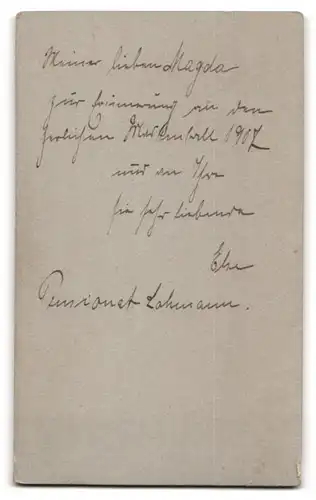 Meiner lieben Magda
zur Erinnerung an den
herlichen Maskenball 1907
und an Ihre
sie sehr liebende
Else
Pensionat Lohmann.